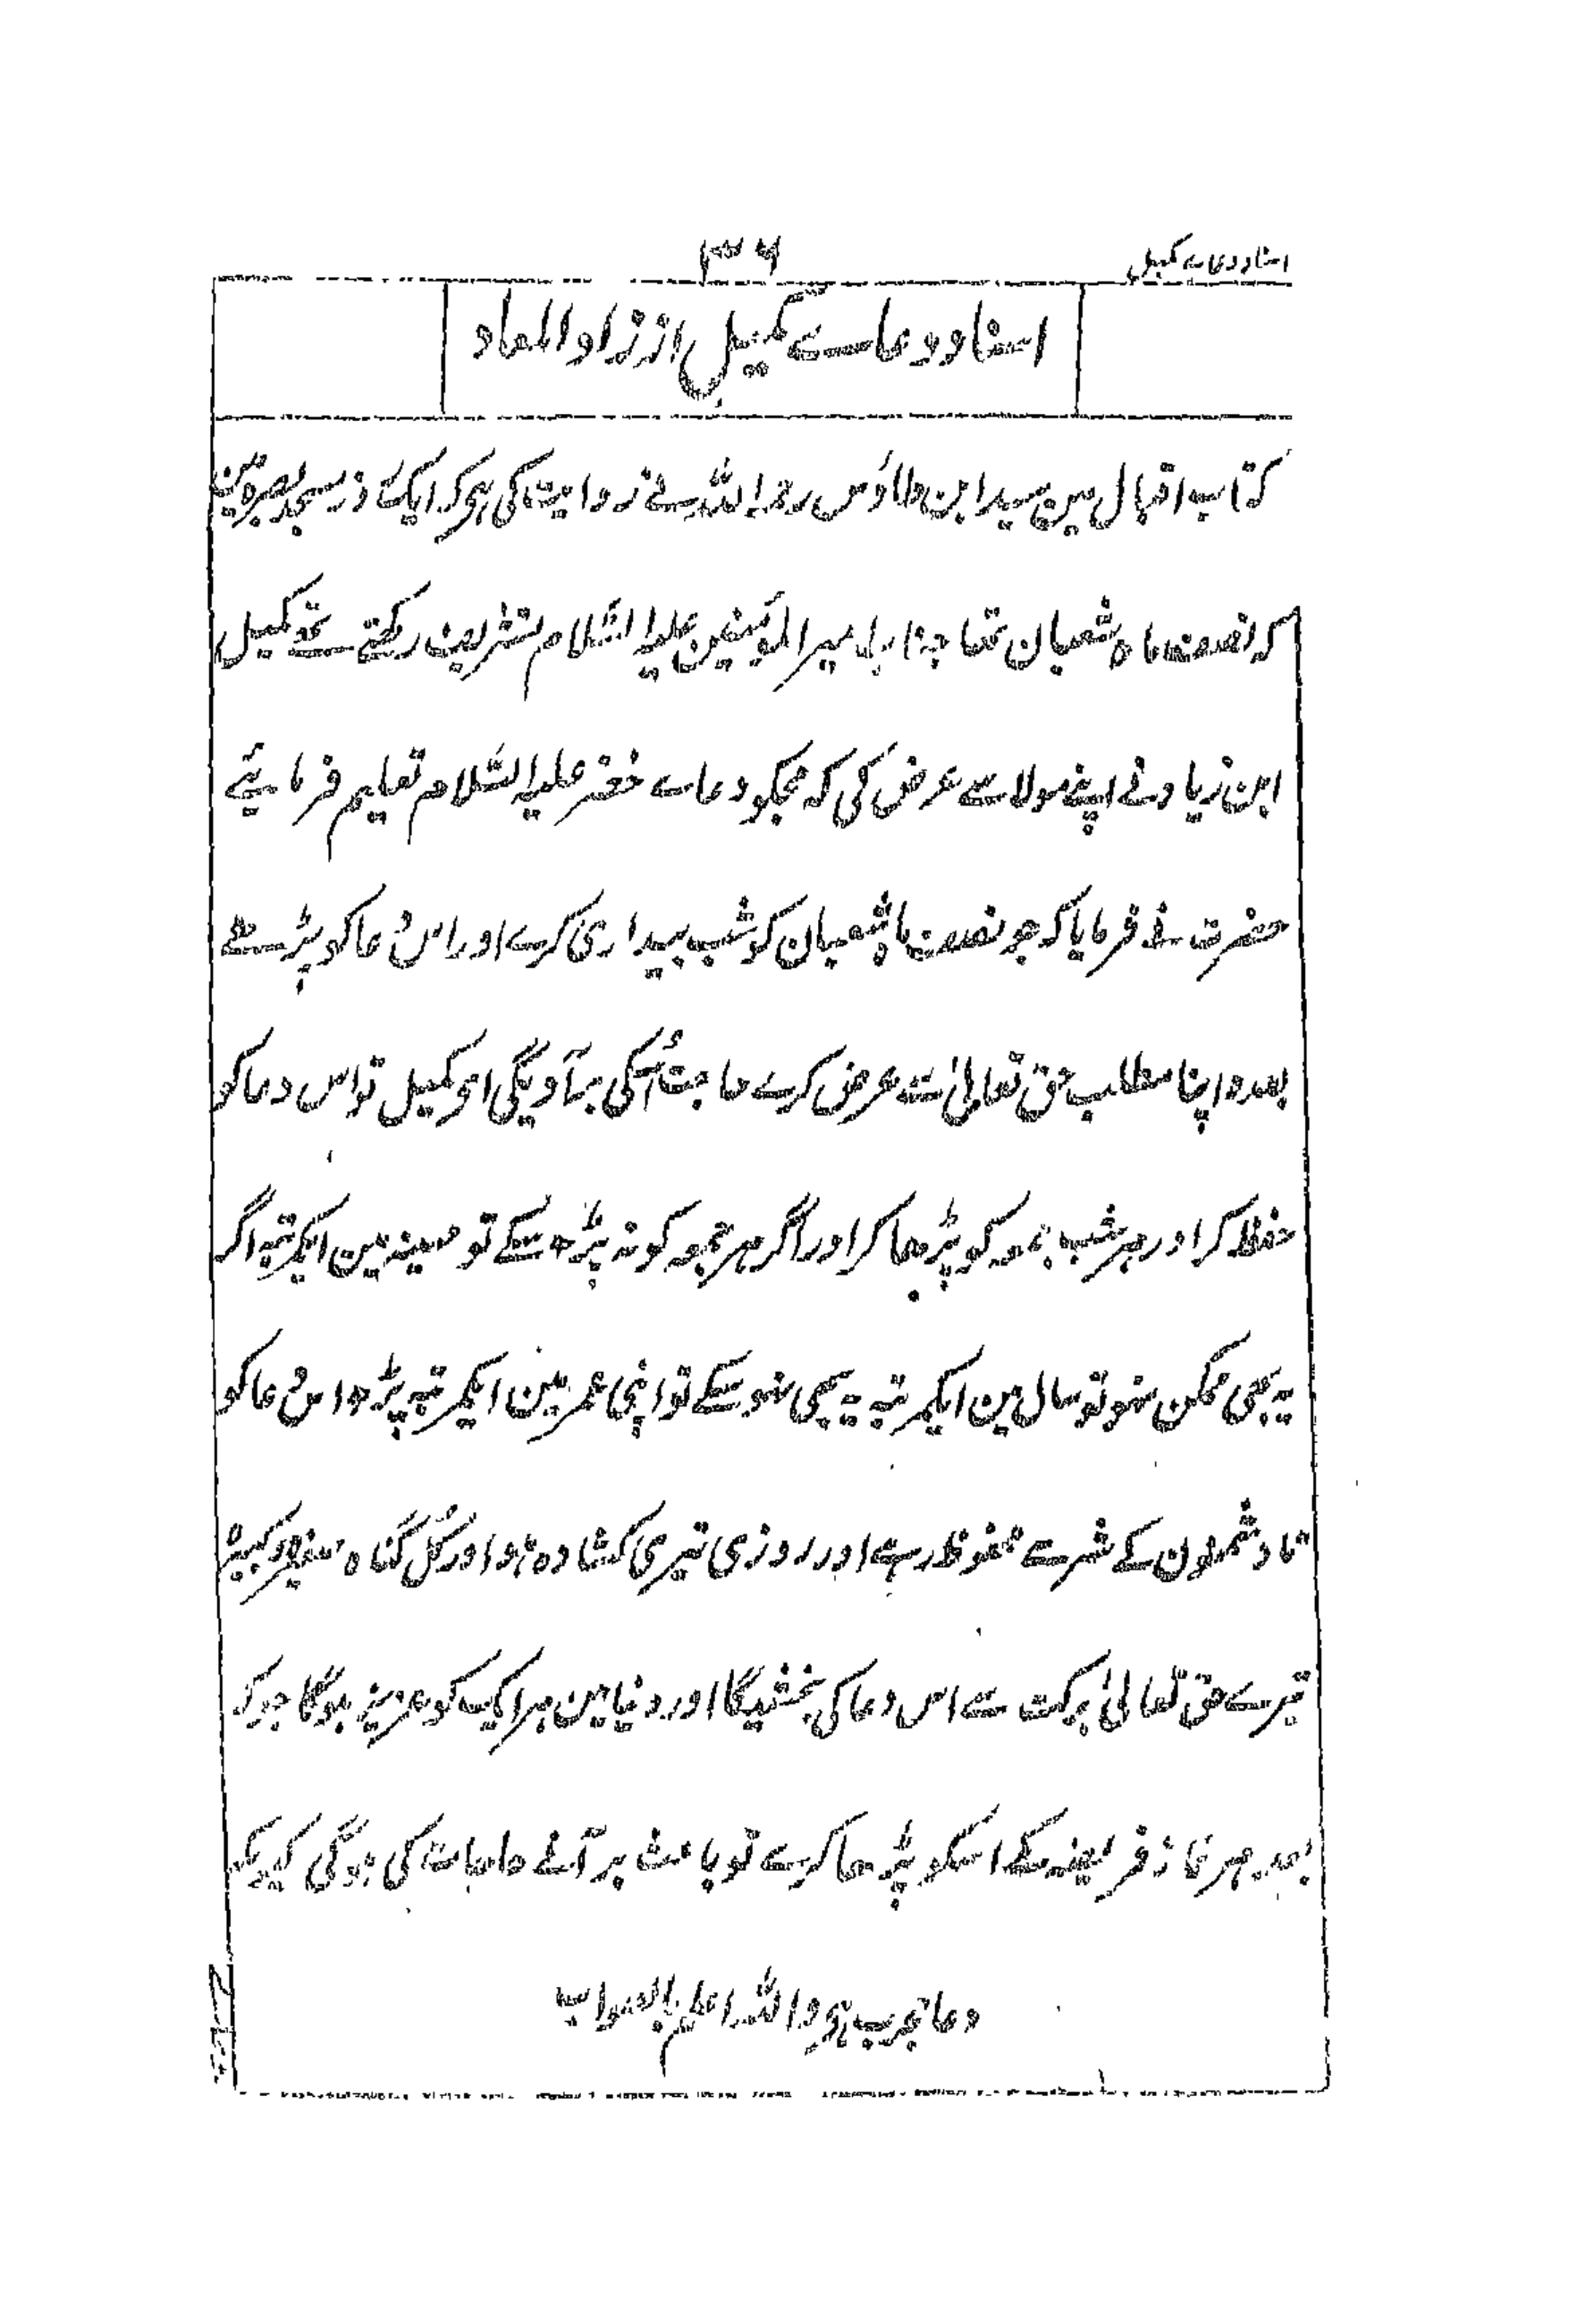 اسناد دعاے کمیل
۳۶
اسناد دعاے کمیل از زاد المعاد
کتاب اقبال مین سید ابن طاؤس رحمہ اللہ نے روایت کی ہی کہ ایک روز مسجد بصرہ مین
کہ نصف ماہ شعبان تھا جناب امیر المؤمنین علیہ السّلام تشریف رکھتے تھے کمیل
ابن زیاد نے اپنے مولا سے عرض کی کہ مجکو دعاے خضر علیہ السّلام تعلیم فرمایئے
حضرت نے فرمایا کہ جو نصف ماہ شعبان کو شب بیداری کرے اور اس دعا کو پڑھے
بعدہ اپنا مطلب حق تعالیٰ سے عرض کرے حاجت اُسکی برآویگی ای کمیل تو اس دعا کو
حفظ کر اور ہر شب جمعہ کو پڑھا کر اور اگر ہر جمعہ کو نہ پڑھ سکے تو مہینہ مین ایکمرتبہ اگر
یہ بھی ممکن نہو تو سال مین ایکمرتبہ یہ بھی نہو سکے تو اپنی عمر مین ایکمرتبہ پڑھ اس دعا کو
تا دشمنون کے شر سے محفوظ رہے اور روزی تیری کشادہ ہو اور کُل گناہ صغیرہ کبیرہ
تیرے حق تعالیٰ برکت سے اس دعا کی بخشیگا اور دنیا مین ہر ایک کو عزیز ہوگا جو کہ
بعد ہر نماز فریضہ کے اسکو پڑھا کرے تو باعث بر آنے حاجات کی ہوگی کیونکہ
دعا مجرب ہی واللہ اعلم بالصواب